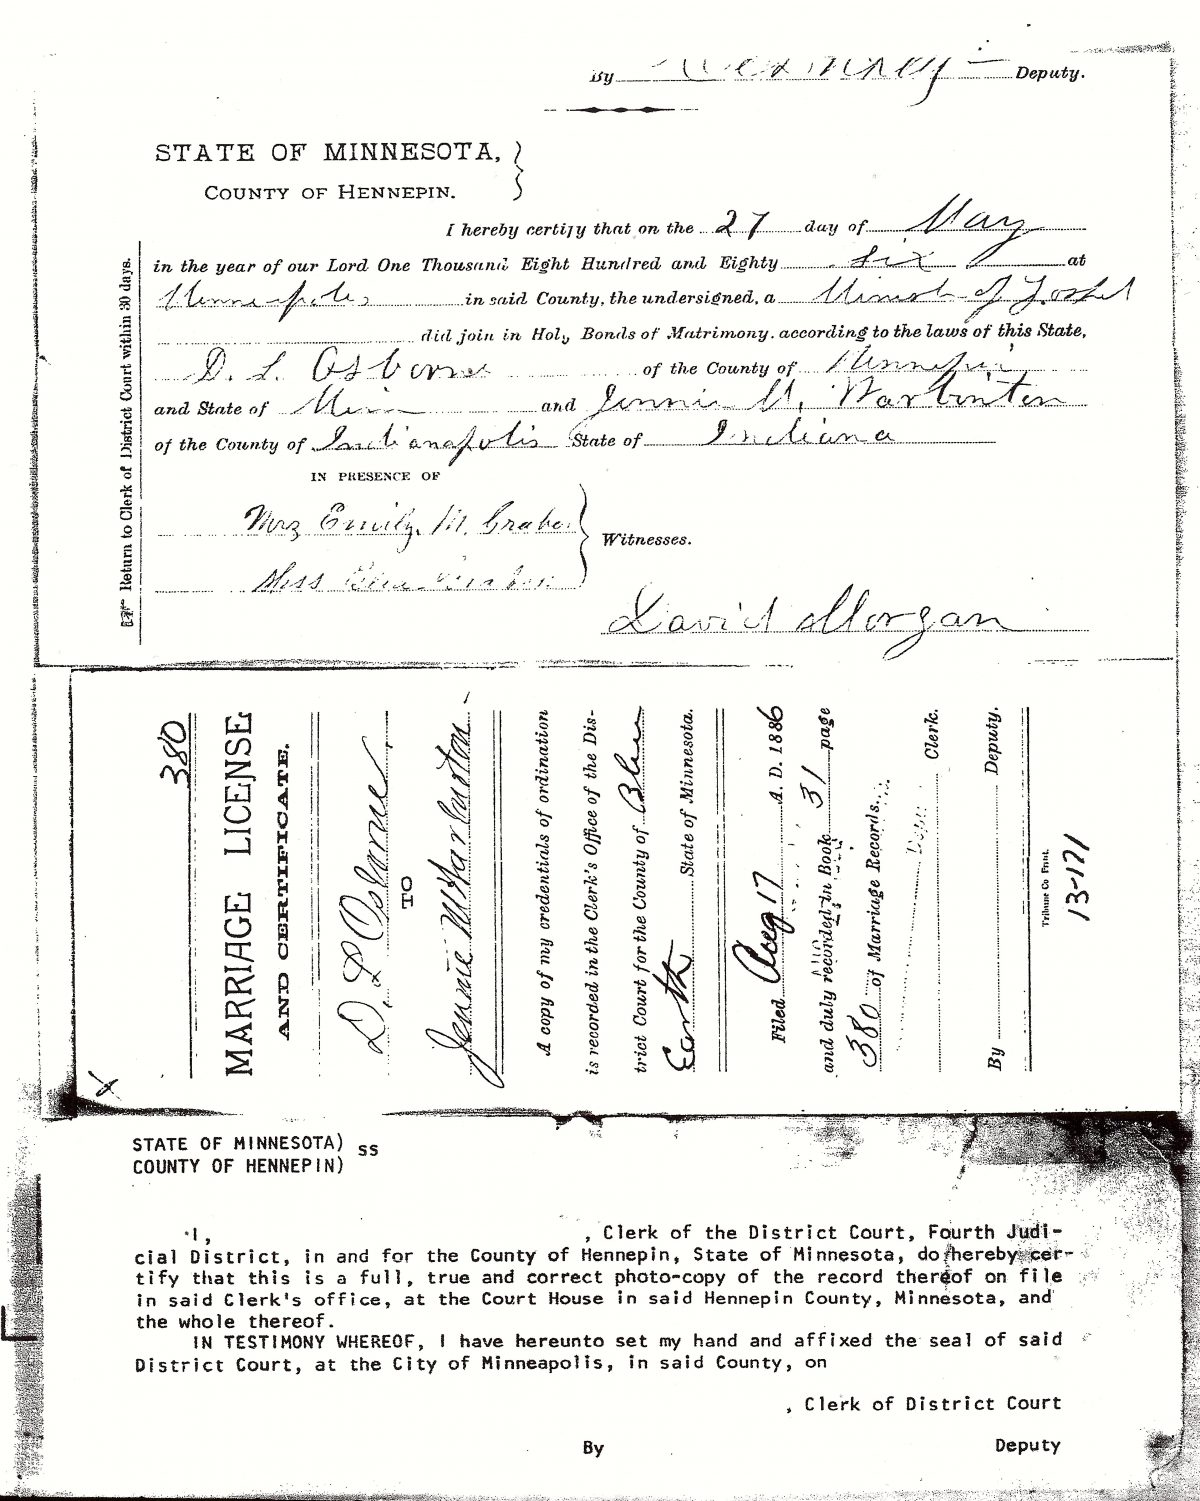 By Deputy.
STATE OF MINNESOTA, }
COUNTY OF HENNEPIN.
I hereby certify that on the 27 day of May
in the year of our Lord One Thousand Eight Hundred and Eighty six at
Minneapolis in said County, the undersigned, a Minister of Gospel
did join in Holy Bonds of Matrimony, according to the laws of this State,
D. L. Osborne of the County of Hennepin
and State of Minn and Jennie M. Warbinton
of the County of Indianapolis State of Indiana
IN PRESENCE OF
Mrs Emily M. Graber
Witnesses.
Miss
David Morgan
Return to Clerk of District Court within 30 days.
380
MARRIAGE LICENSE
AND CERTIFICATE.
D. L Osborne
TO
Jennie M Warbinton
A copy of my credentials of ordination
is recorded in the Clerk's Office of the Dis-
trict Court for the County of Blue
Earth State of Minnesota.
Filed Aug 17 A. D. 1886
and duly recorded in Book 31 page
380 of Marriage Records.
Clerk.
By Deputy.
Tribune Co Print.
13-171
STATE OF MINNESOTA) ss
COUNTY OF HENNEPIN)
I, , Clerk of the District Court, Fourth Judi-
cial District, in and for the County of Hennepin, State of Minnesota, do hereby cer-
tify that this is a full, true and correct photo-copy of the record thereof on file
in said Clerk's office, at the Court House in said Hennepin County, Minnesota, and
the whole thereof.
IN TESTIMONY WHEREOF, I have hereunto set my hand and affixed the seal of said
District Court, at the City of Minneapolis, in said County, on
, Clerk of District Court
By Deputy